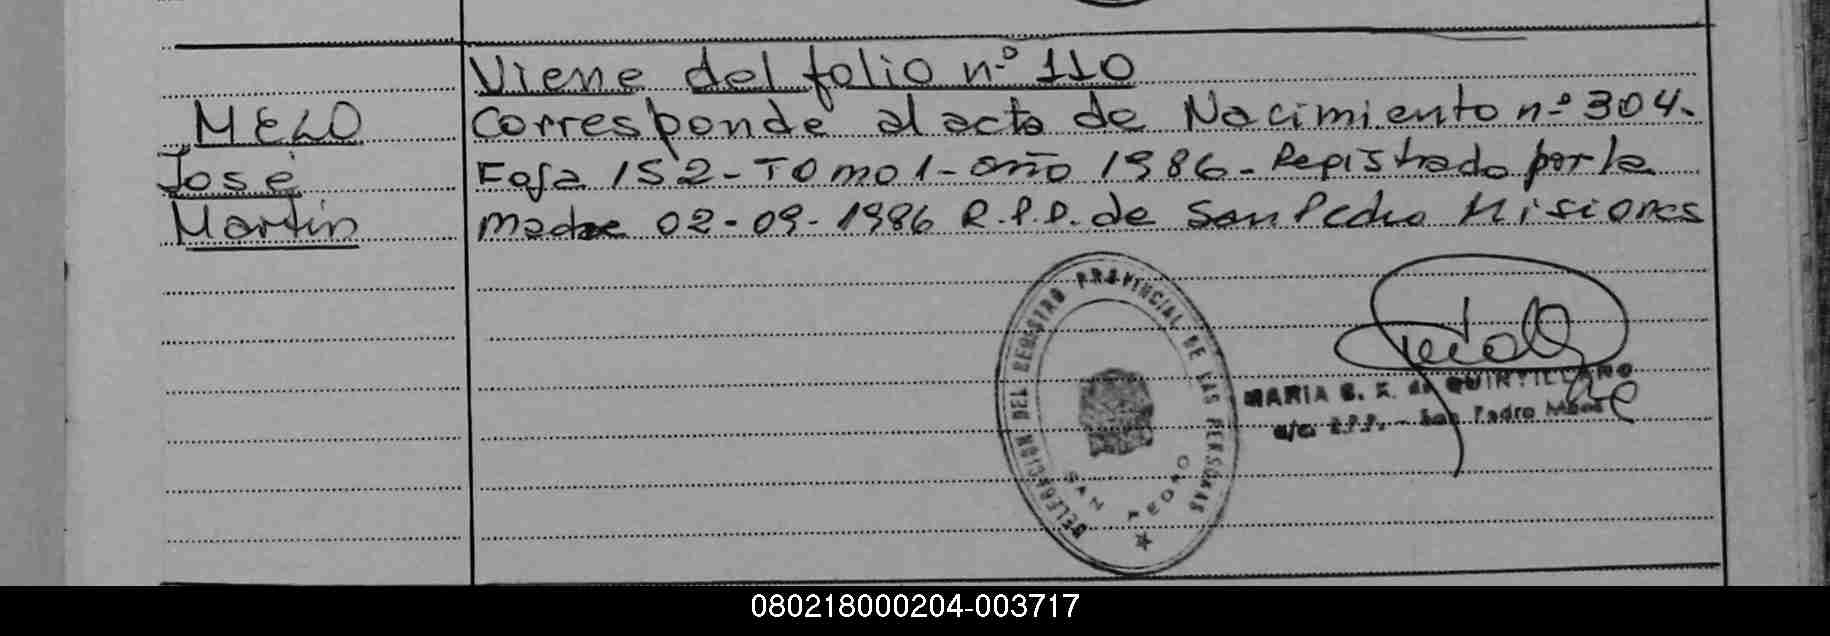 Viene del folio n.º 110
MELO
Corresponde al acta de Nacimiento n.º 304.
José
Foja 152 - Tomo 1 - año 1986 - Registrado por la
Martin
madre 02-09-1986 R.P.P. de San Pedro Misiones
DELEGACION DEL REGISTRO PROVINCIAL DE LAS PERSONAS
SAN PEDRO
MARIA de QUINTILLANO
a/c. R.P.P. - San Pedro
080218000204-003717